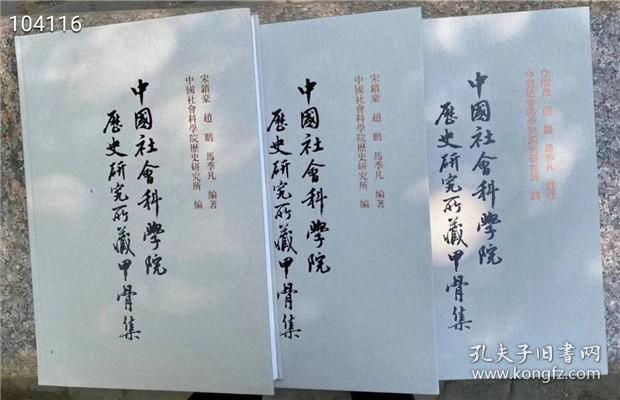 104116
中國社會科學院
歷史研究所藏甲骨集
宋鎮豪 趙鵬 馬季凡 編著
中國社會科學院歷史研究所 編
中國社會科學院
歷史研究所藏甲骨集
宋鎮豪 趙鵬 馬季凡 編著
中國社會科學院歷史研究所 編
中國社會科學院
歷史研究所藏甲骨集
孔夫子旧书网
www.kongfz.com